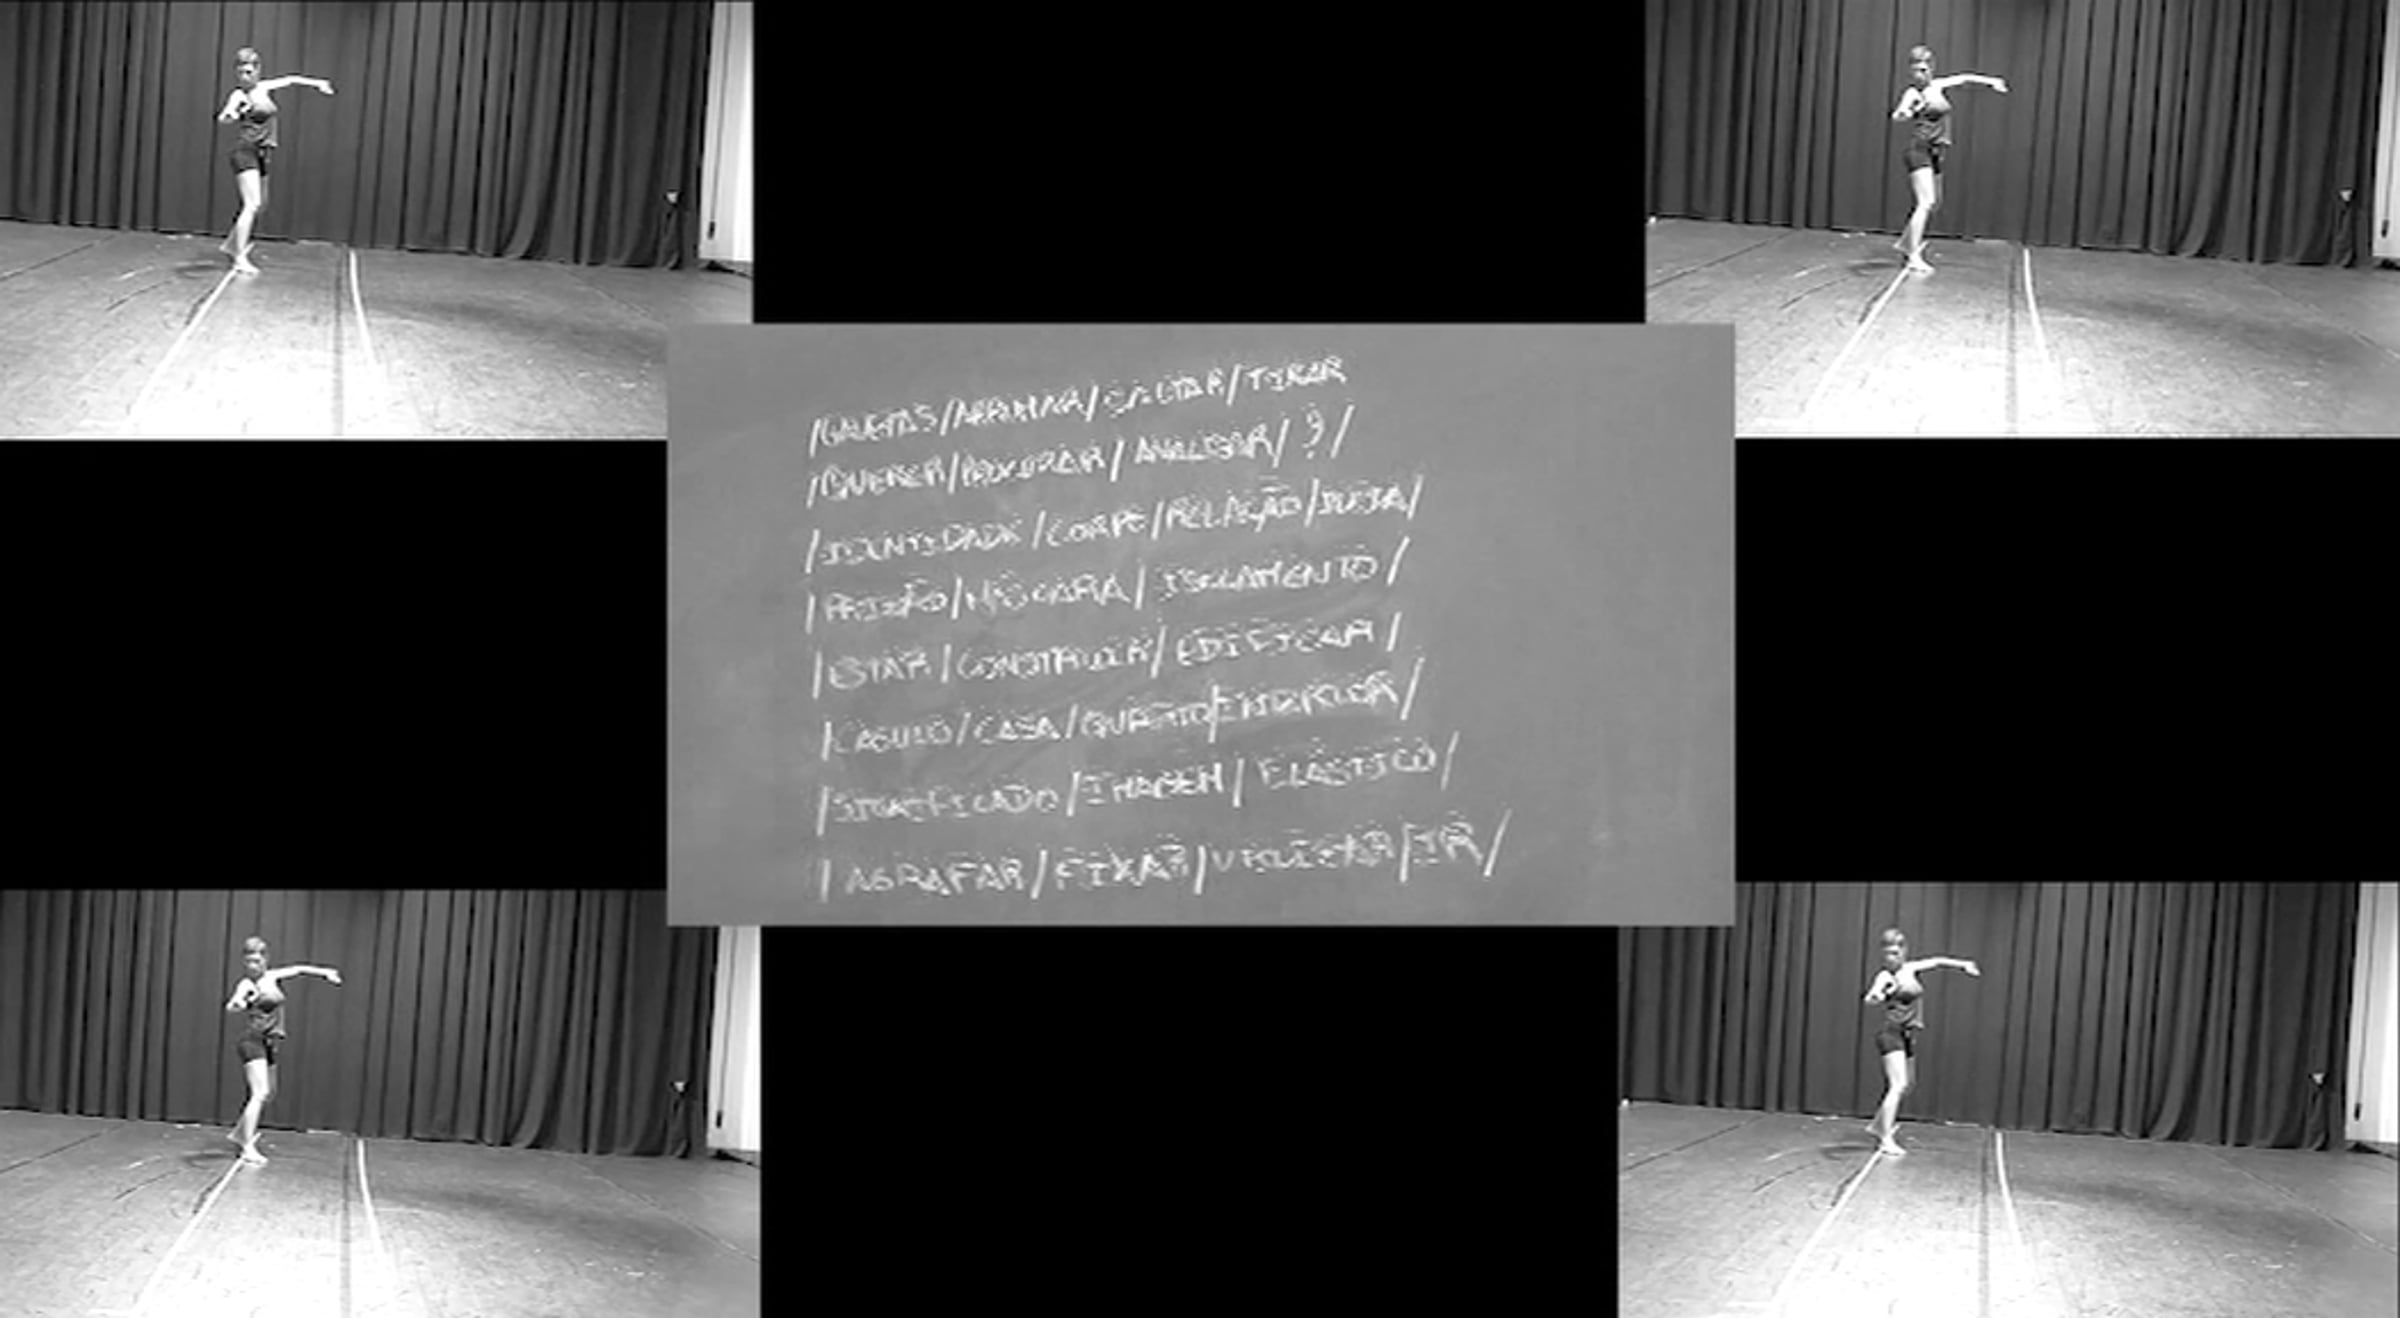 /GAVETAS/ARRUMAR/SALTAR/TIRAR
/QUERER/PROCURAR/ANALISAR/?/
/IDENTIDADE/CORPO/RELAÇÃO/
/PRISÃO/MÁSCARA/ISOLAMENTO/
/ESTAR/CONSTRUIR/EDIFICAR/
/CASULO/CASA/QUARTO/
/SIGNIFICADO/IMAGEM/ELÁSTICO/
/AGRAFAR/FIXAR/IR/